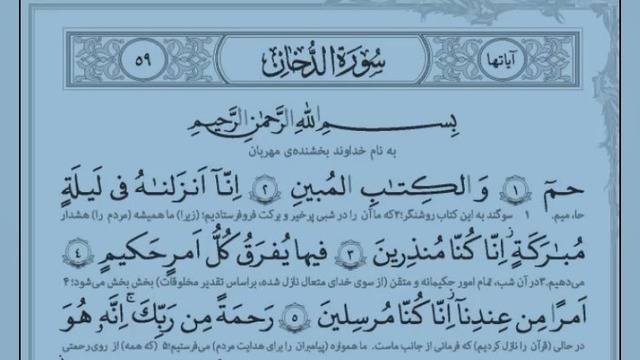 آیاتها سُورَةُ الدُّخان ۵۹
بِسمِ اللهِ الرَّحمٰنِ الرَّحیمِ
به نام خداوند بخشنده‌ی مهربان
حمٓ ﴿۱﴾ وَ الكِتابِ المُبينِ ﴿۲﴾ اِنّآ اَنزَلناهُ فى لَيلَةٍ
حا، میم. ۱ سوگند به این کتاب روشنگر؛۲که ما آن را در شبی پرخیر و برکت فروفرستادیم؛ (زیرا) ما همیشه (مردم را) هشدار
مُبارَكَةٍ ۚ اِنّا كُنّا مُنذِرينَ ﴿۳﴾ فيها يُفرَقُ كُلُّ اَمرٍ حَكيمٍ ﴿۴﴾
می‌دهیم.۳در آن شب، تمام امور حکیمانه و متقن (از سوی خدای متعال نازل شده، براساس تقدیر مخلوقات) بخش بخش می‌شود؛۴
اَمرًا مِن عِندِنآ ۚ اِنّا كُنّا مُرسِلينَ ﴿۵﴾ رَحمَةً مِن رَبِّكَ ۚ اِنَّهو هُوَ
در حالی (قرآن را نازل کردیم) که فرمانی از جانب ماست. ما همواره (پیامبران را برای هدایت مردم) می‌فرستیم؛۵ (که همه) از روی رحمتی